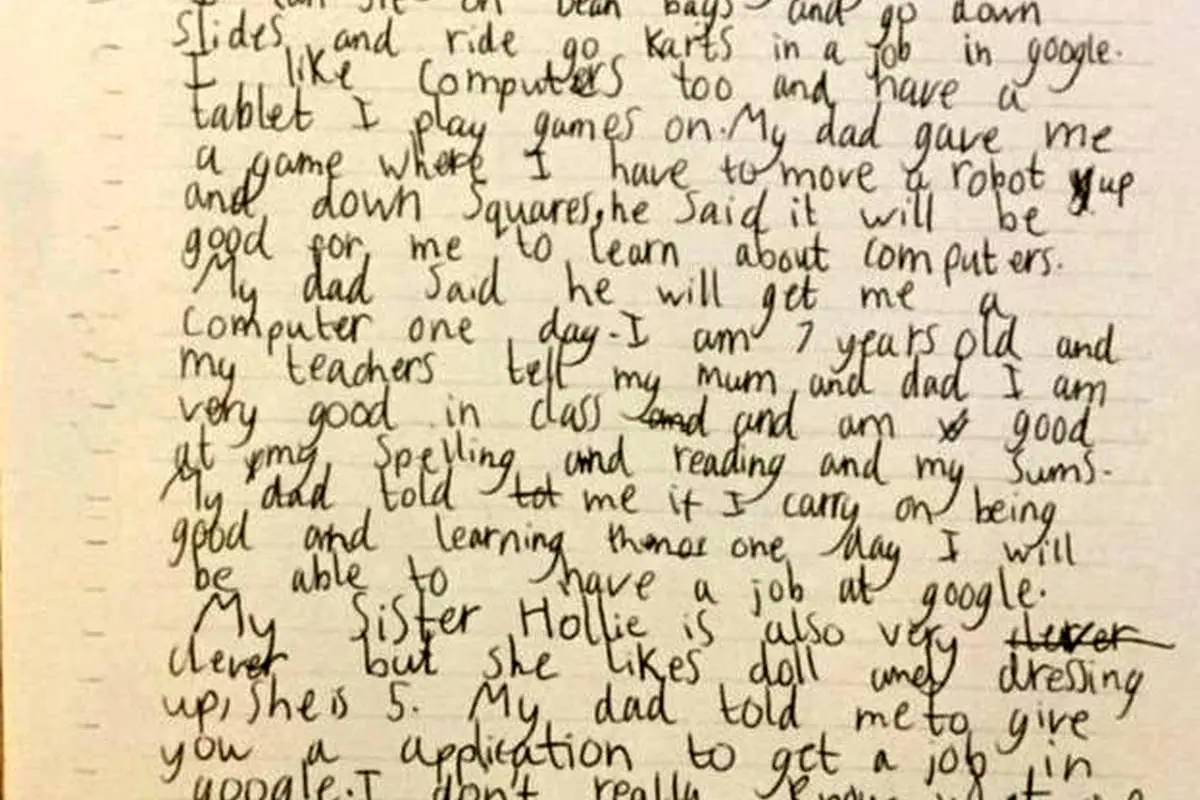 I can sit on bean bags and go down
slides and ride go karts in a job in google.
I like computers too and have a
tablet I play games on. My dad gave me
a game where I have to move a robot up
and down squares, he said it will be
good for me to learn about computers.
My dad said he will get me a
computer one day. I am 7 years old and
my teachers tell my mum and dad I am
very good in class and and am good
at my spelling and reading and my sums.
My dad told tot me if I carry on being
good and learning one day I will
be able to have a job at google.
My sister Hollie is also very clever
clever but she likes doll and dressing
up, she is 5. My dad told me to give
you a application to get a job in
google. I don't really